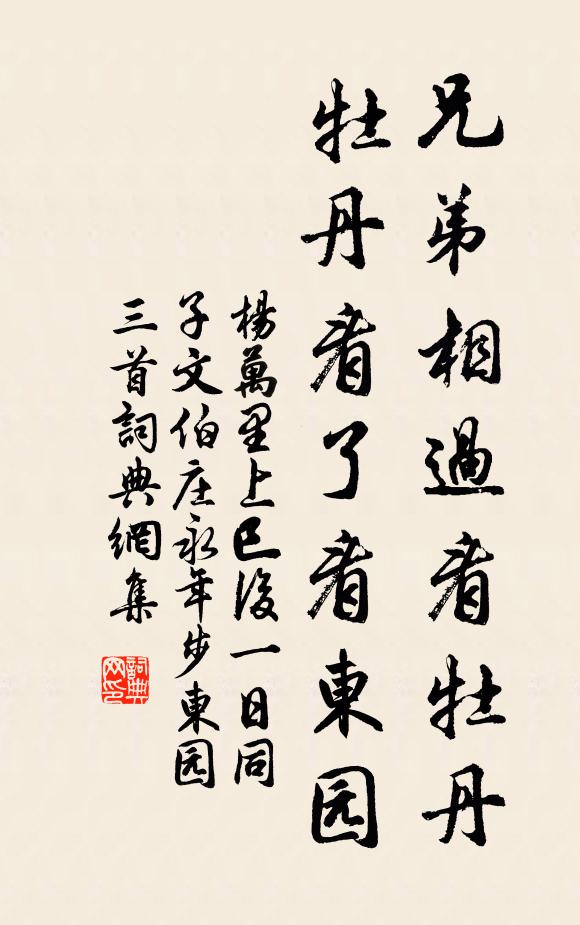 兄弟相過看牡丹
牡丹看了看東园
楊萬里上巳後一日同
子文伯庄永年步東园
三首詞典網集
詞典网印